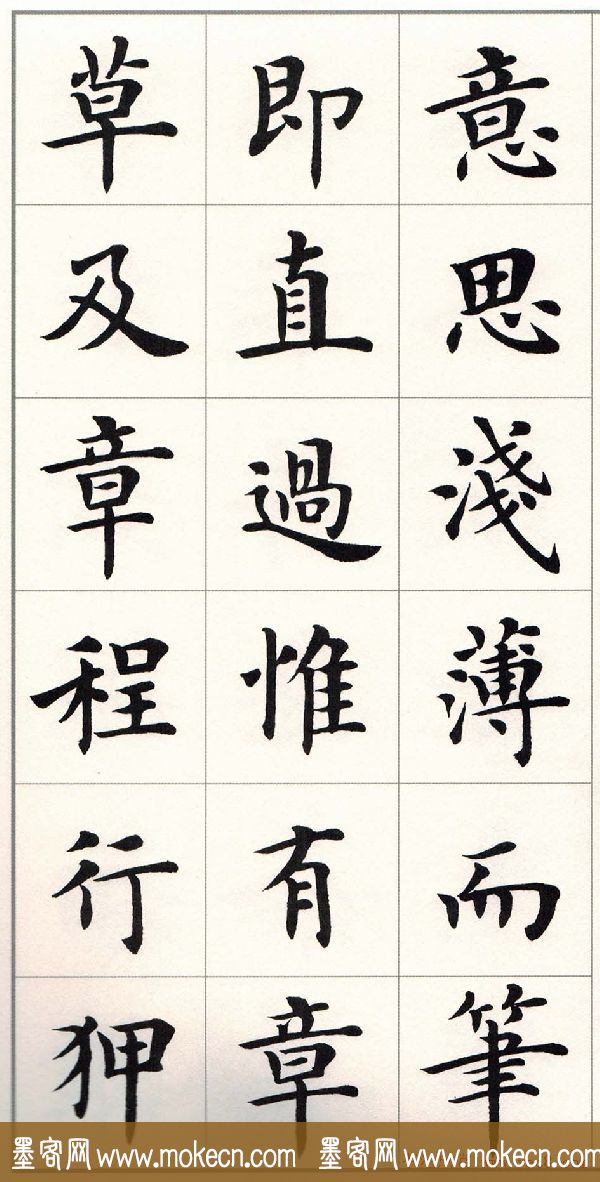 意思淺薄而筆
即直過惟有章
草及章程行狎
墨客网 www.mokecn.com 墨客网 www.mokecn.com